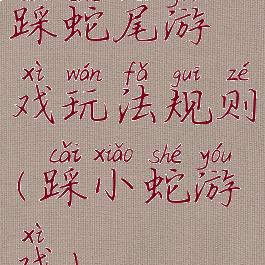 踩蛇尾游
xì wán fǎ guī zé
戏玩法规则
cǎi xiǎo shé yóu
(踩小蛇游
xì
戏)